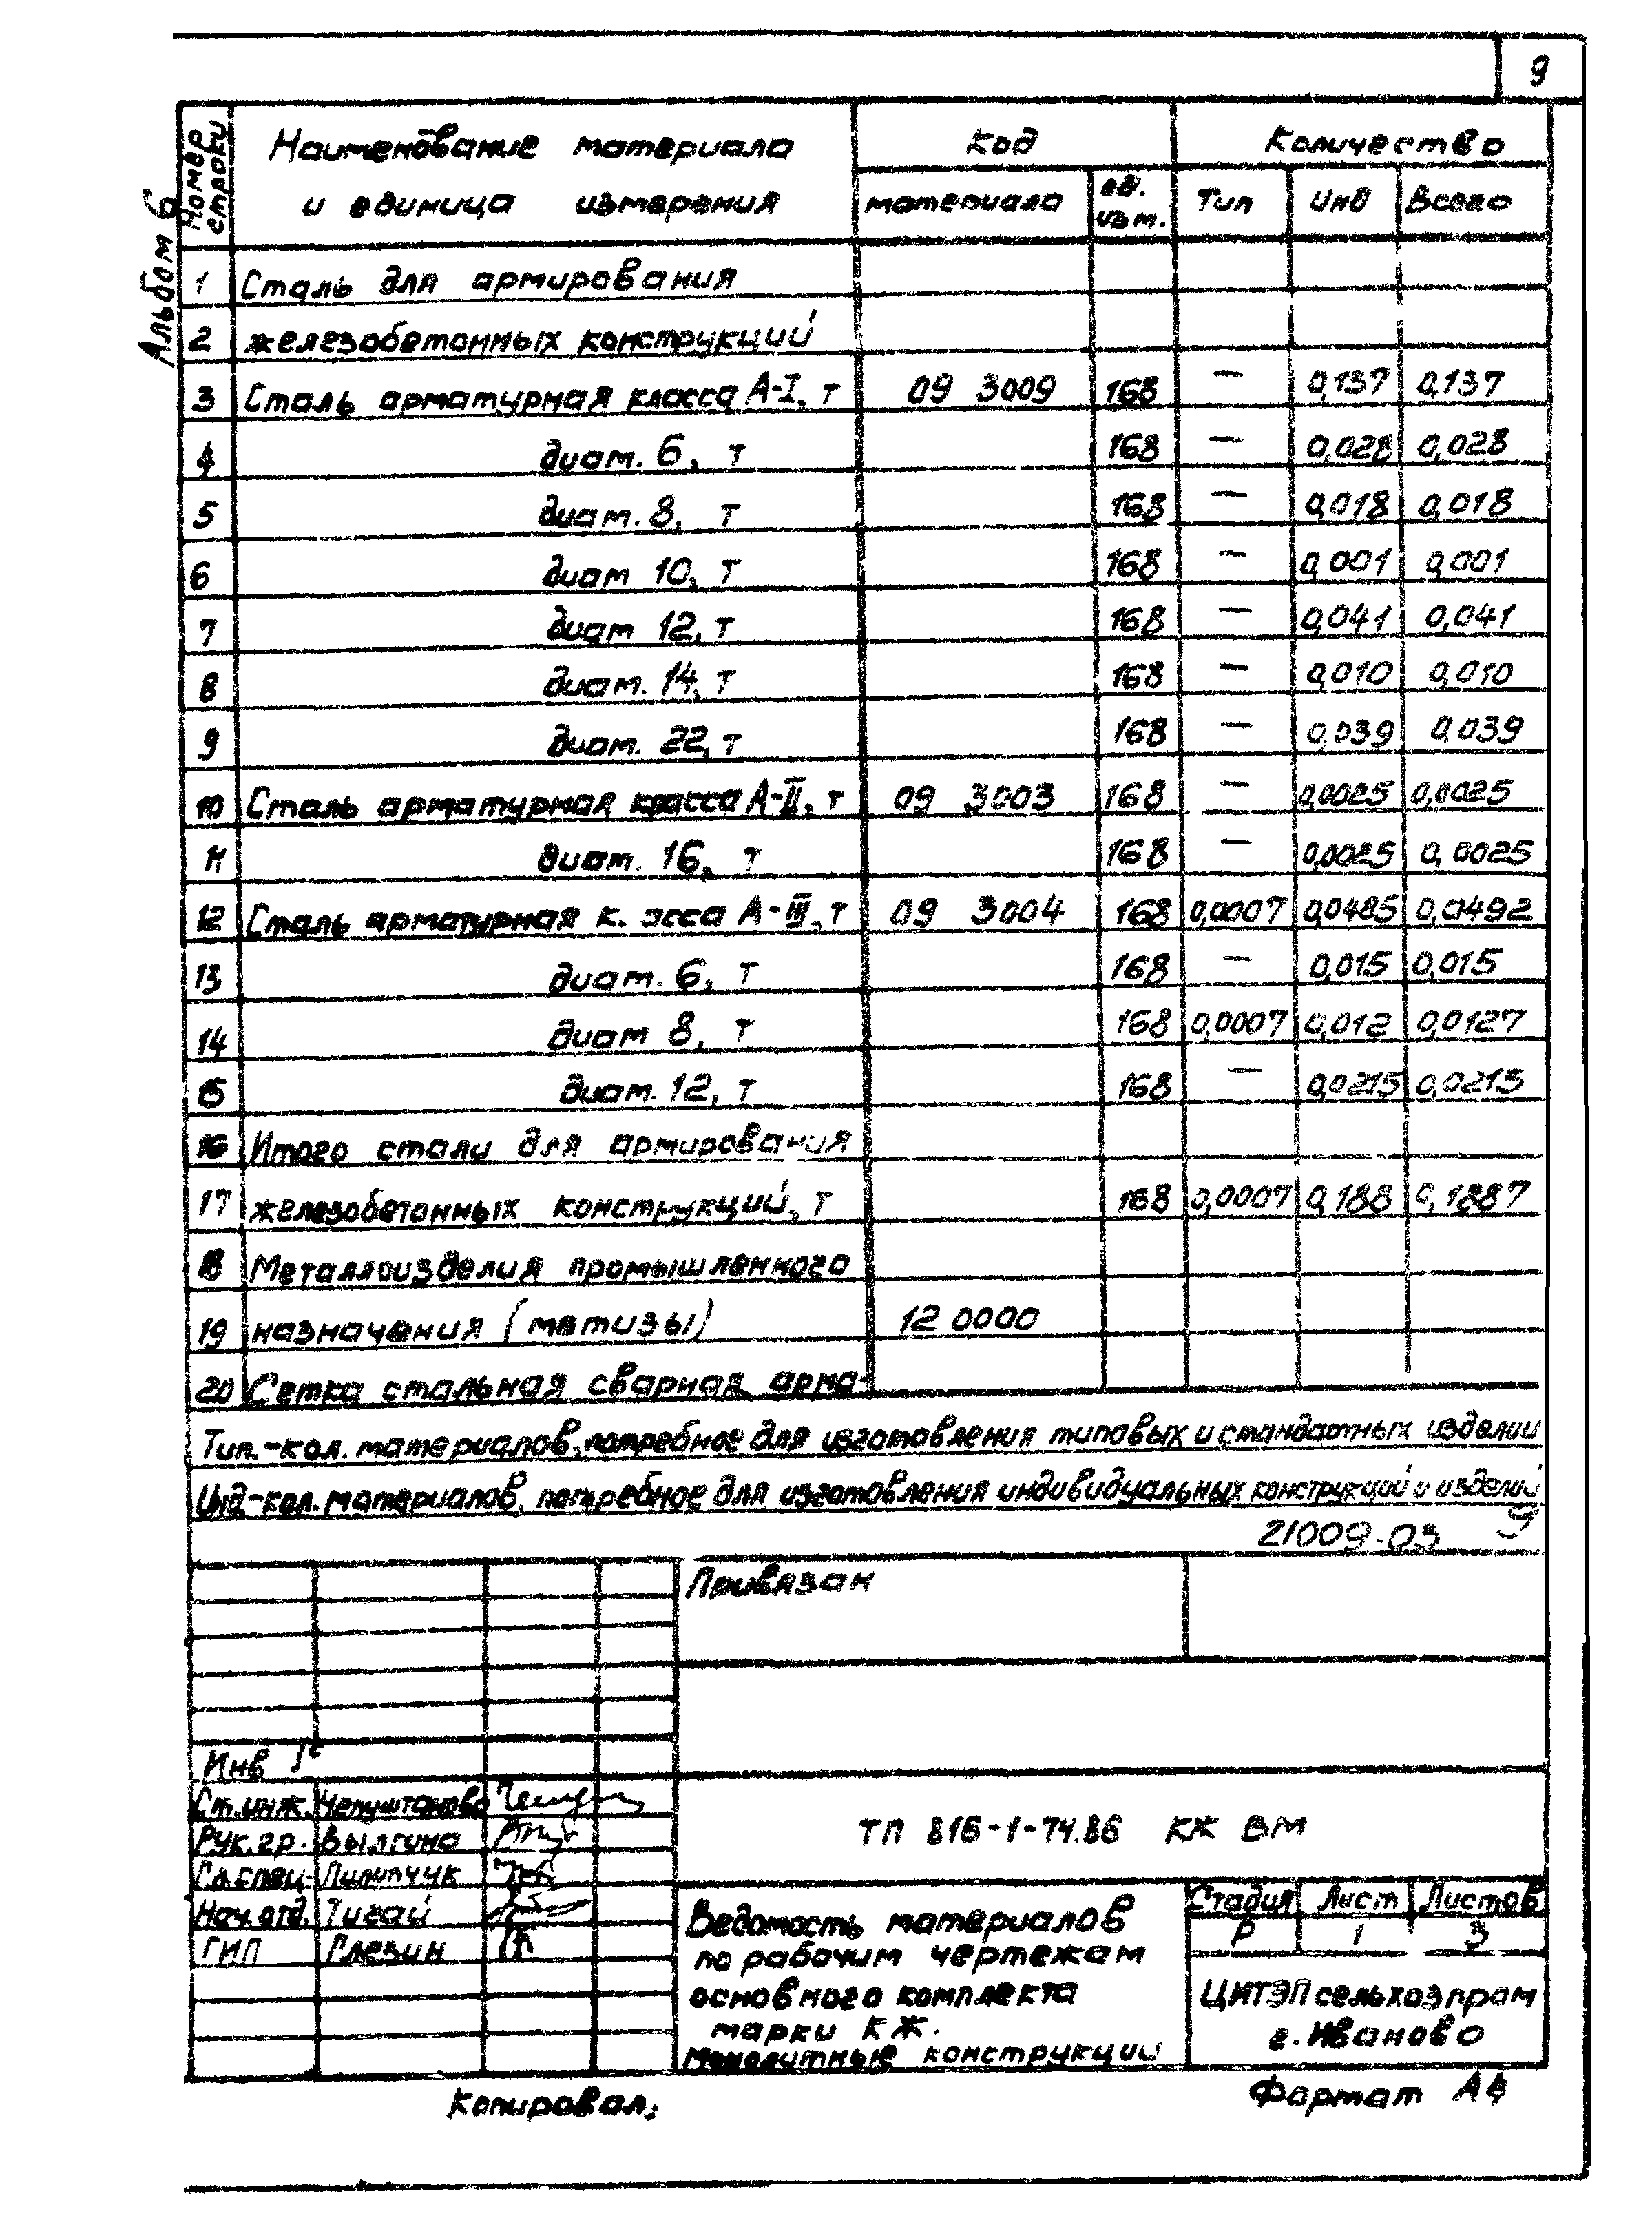 9
Альбом 6
Номер строки
Наименование материала
и единица измерения
Код
материала
ед. изм.
Количество
Тип
Инд
Всего
1 Сталь для армирования
2 железобетонных конструкций
3 Сталь арматурная класса А-I, т 09 3009 168 — 0,137 0,137
4 диам. 6, т 168 — 0,028 0,028
5 диам. 8, т 168 — 0,018 0,018
6 диам 10, т 168 — 0,001 0,001
7 диам 12, т 168 — 0,041 0,041
8 диам. 14, т 168 — 0,010 0,010
9 диам. 22, т 168 — 0,039 0,039
10 Сталь арматурная класса А-II, т 09 3003 168 — 0,0025 0,0025
11 диам. 16, т 168 — 0,0025 0,0025
12 Сталь арматурная к. асса А-III, т 09 3004 168 0,0007 0,0485 0,0492
13 диам. 6, т 168 — 0,015 0,015
14 диам 8, т 168 0,0007 0,012 0,0127
15 диам. 12, т 168 — 0,0215 0,0215
16 Итого стали для армирования
17 железобетонных конструкций, т 168 0,0007 0,188 0,1887
18 Металлоизделия промышленного
19 назначения (метизы) 12 0000
20 Сетка стальная сварная арма-
Тип.-кол. материалов, потребное для изготовления типовых и стандартных изделий
Инд-кол. материалов, потребное для изготовления индивидуальных конструкций и изделий
21009-03 9
Привязан
Инв
Ст.инж.
Рук.гр. Вылгина
Гл.спец. Пилипчук
Нач.отд. Тигай
ГИП Глезин
ТП 816-1-74.86 КЖ ВМ
Ведомость материалов
по рабочим чертежам
основного комплекта
марки КЖ.
Монолитные конструкции
Стадия Лист Листов
Р 1 3
ЦИТЭПсельхозпром
г. Иваново
Копировал:
Формат А4